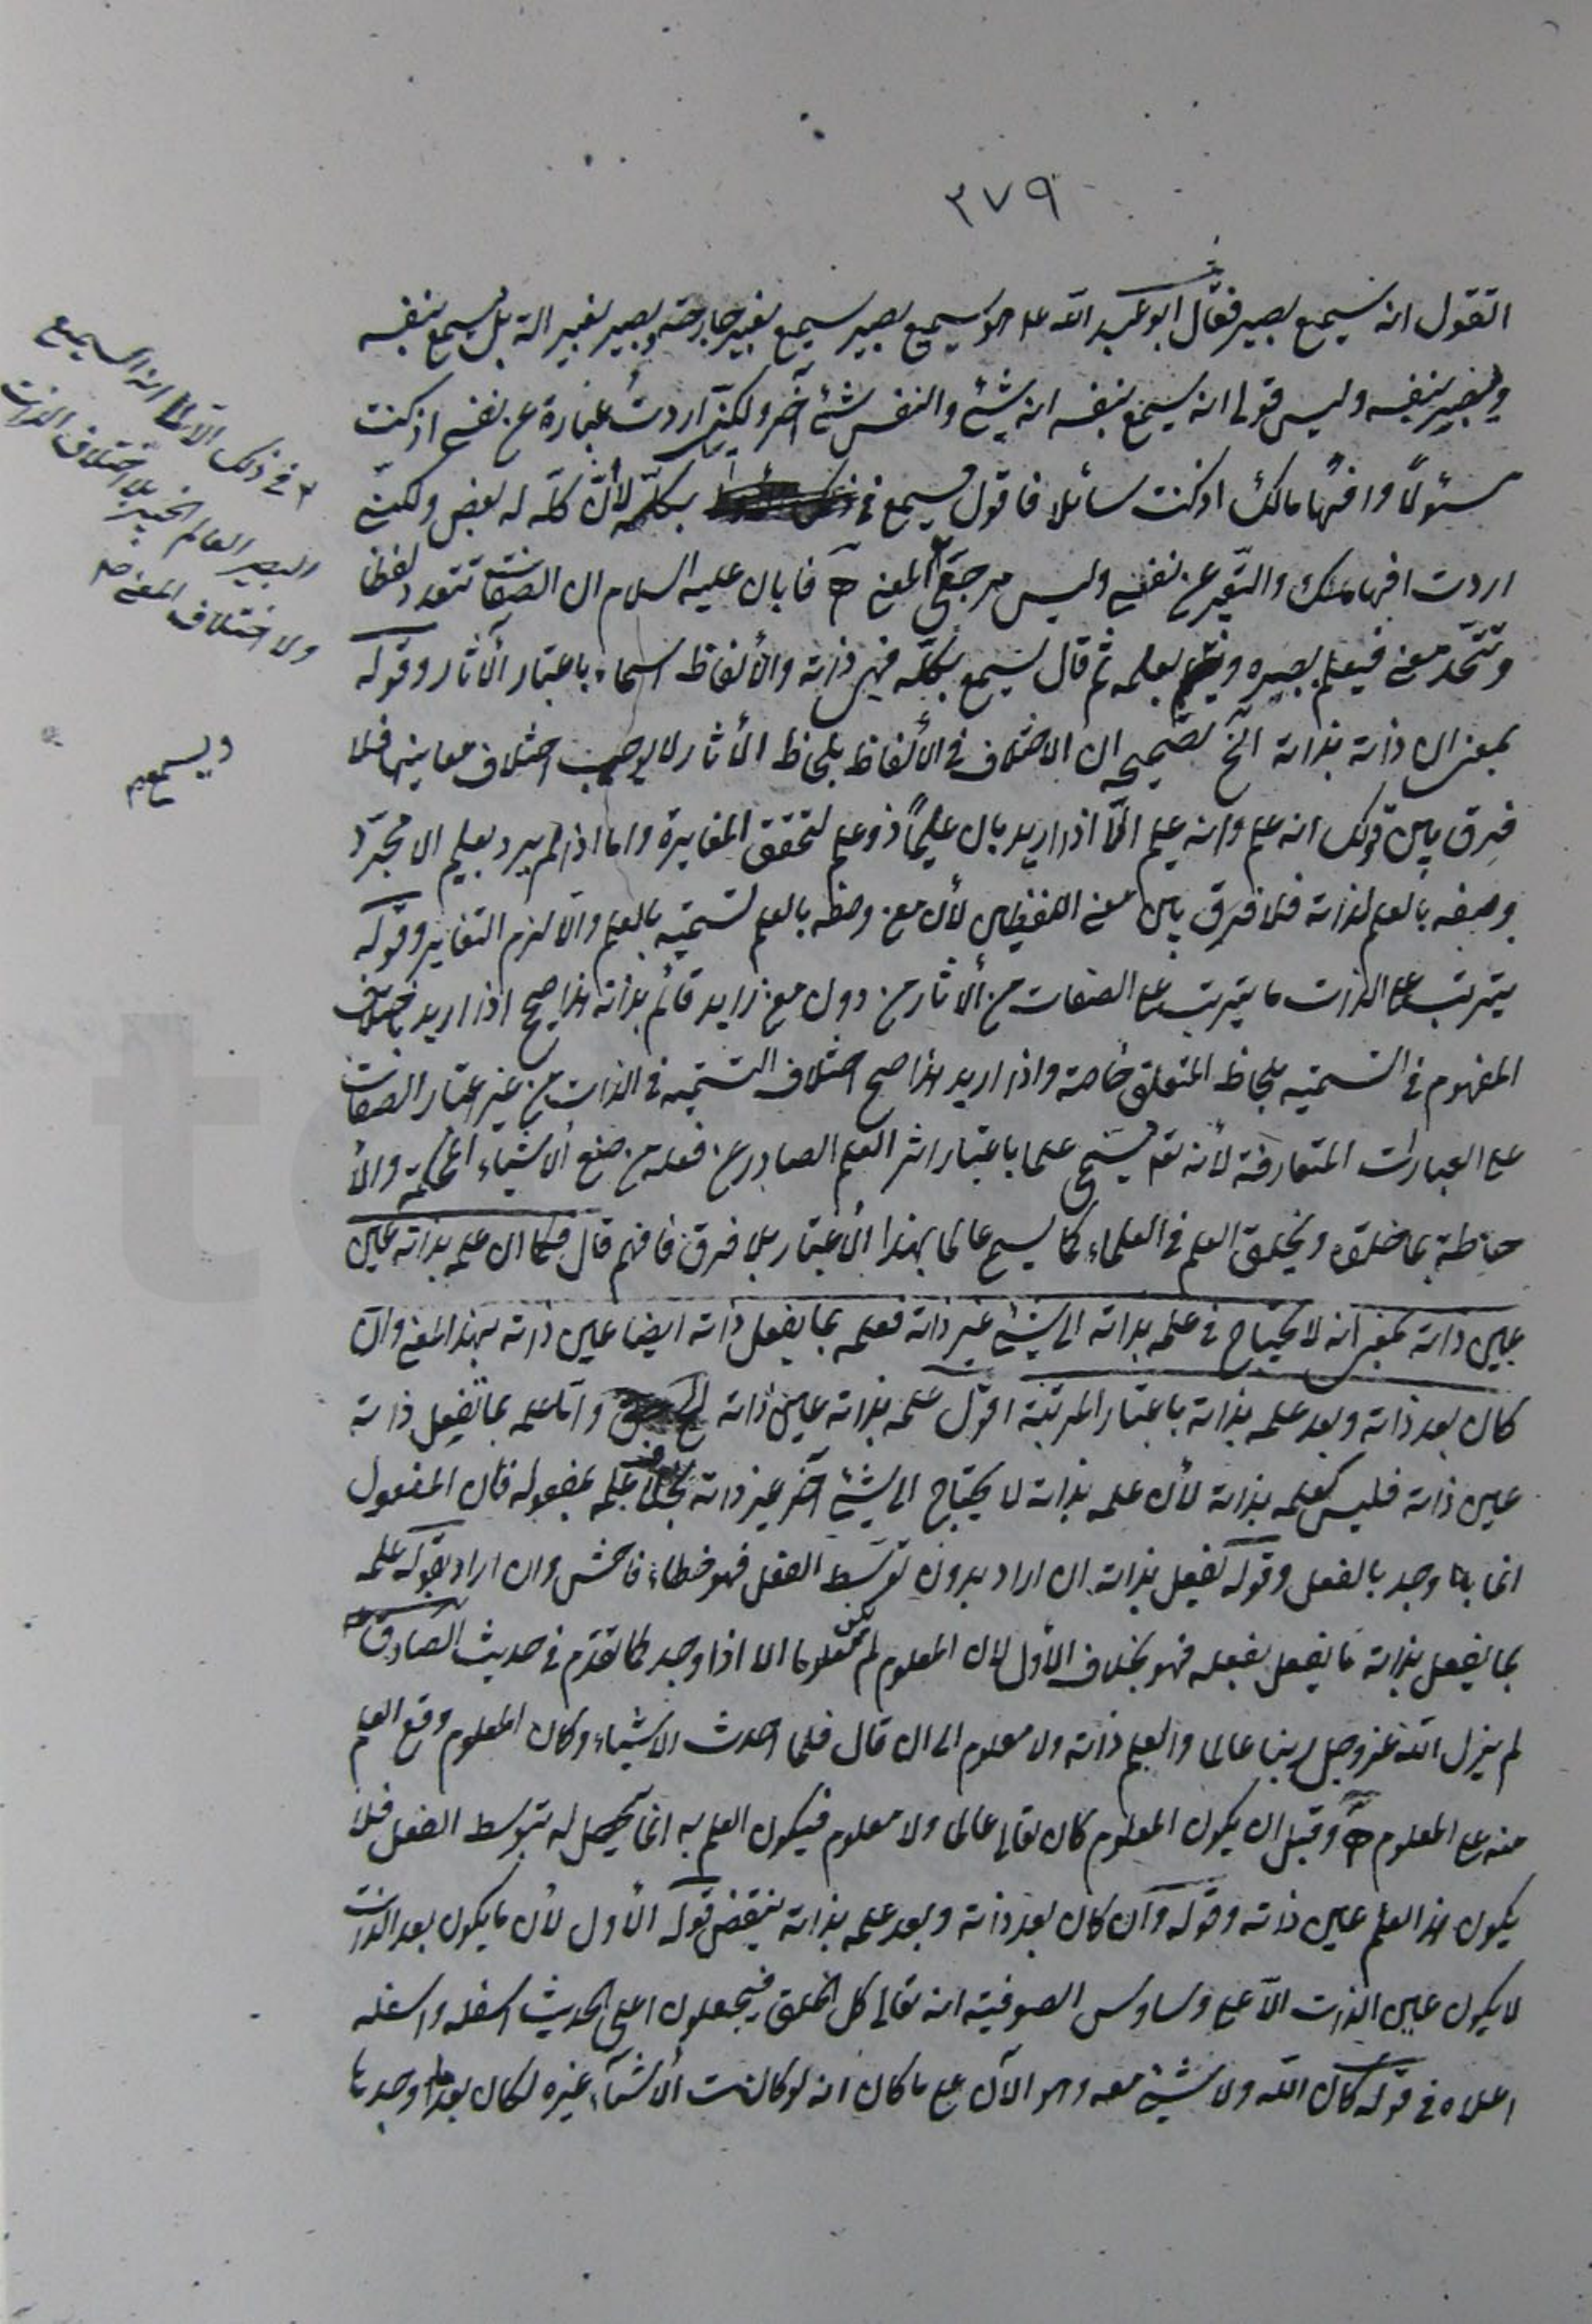 ٣٧٩
اتقول انه سميع بصير فقال ابو عبد الله ع هو سميع بصير سميع بغير جارحة وبصير بغير الة بل يسمع بنفسه
ويبصر بنفسه وليس قولى انه يسمع بنفسه انه شئ والنفس شئ آخر ولكنى اردت عبارة عن نفسى اذ كنت
مسئولًا وافهامًا لك اذ كنت سائلا فاقول يسمع بكلّه لأنّ كلّه له بعض ولكنى
اردت افهامك والتعبير عن نفسى وليس مرجعى المعنى فابان عليه السلام ان الصفات تتعدد لفظا
وتتّحد معنى فيعلم ببصره بعلمه ثم قال يسمع بكلّه فهى ذاته والألفاظ اسماء باعتبار الآثار وقوله
بمعنى ان ذاته بذاته الخ تصحيحه ان الاختلاف في الألفاظ بلحاظ الأثار لا يوجب اختلاف معانيها فلا
فرق بين قولك انه علم وانه عليم الّا اذا اريد بان عليمًا ذو علم لتحقق المغايرة واما اذا لم يرد بعليم الا مجرّد
وصفه بالعلم لذاته فلا فرق بين معنى اللفظين لأن معنى وصفه بالعلم تسميته بالعلم والّا لزم التغاير وقوله
يترتب على الذات ما يترتب على الصفات من الأثار من دون معنى زايد قائم بذاته هذا صحيح اذا اريد باختلاف
المفهوم في التسمية بلحاظ المتعلق خاصة واذا اريد هذا صح اختلاف التسمية في الذات من غير اعتبار الصفات
على العبارات المتعارفة لأنه تعالى يسمى علما باعتبار اثر العلم الصادر عن فعله من صنع الاشياء المحكمة والأ
حاطة بما خلقه وبخلق العلم في العلماء كما يسمى عالما بهذا الأعتبار بلا فرق فافهم قال فكما ان علمه بذاته عين
عين ذاته بمعنى انه لا يحتاج في علمه بذاته الى شئ غير ذاته فعلمه بما يفعل ذاته ايضا عين ذاته بهذا المعنى وان
كان بعد ذاته وبعد علمه بذاته باعتبار المرتبة اقول علمه بذاته عين ذاته واما علمه بما يفعل ذاته
عين ذاته فليس كعلمه بذاته لأن علمه بذاته لا يحتاج الى شئ آخر غير ذاته بخلاف علمه بمفعوله فان المفعول
انما وجد بالفعل وقوله يفعل بذاته ان اراد بدون توسّط الفعل فهو خطاء فاحش وان اراد بقوله علمه
بما يفعل بذاته ما يفعل بفعله فهو بخلاف الأول لان المعلوم لم يكن معلوما الا اذا وجد كما تقدّم في حديث الصادق ع
لم يزل الله عز وجل ربنا عالما والعلم ذاته ولا معلوم الى ان قال فلما احدث الاشياء وكان المعلوم وقع العلم
منه على المعلوم وقبل ان يكون المعلوم كان تعالى عالما ولا معلوم فيكون العلم به انما يحصل له بتوسط الفعل فلا
يكون هذا العلم عين ذاته وقوله وان كان بعد ذاته وبعد علمه بذاته ينقض قوله الأول لأن ما يكون بعد الذات
لا يكون عين الذات الّا على وساوس الصوفية انه تعالى كل الخلق فيجعلون اعلى الحديث اسفله واسفله
اعلاه في قوله كان الله ولا شئ معه وهو الآن على ما كان انه لو كانت الأشياء غيره لكان بعد ما وجدها
في ذلك الا الى انه السميع
البصير العالم الخبير بلا اختلاف الذات
ولا اختلاف المعنى صح
ويسمع